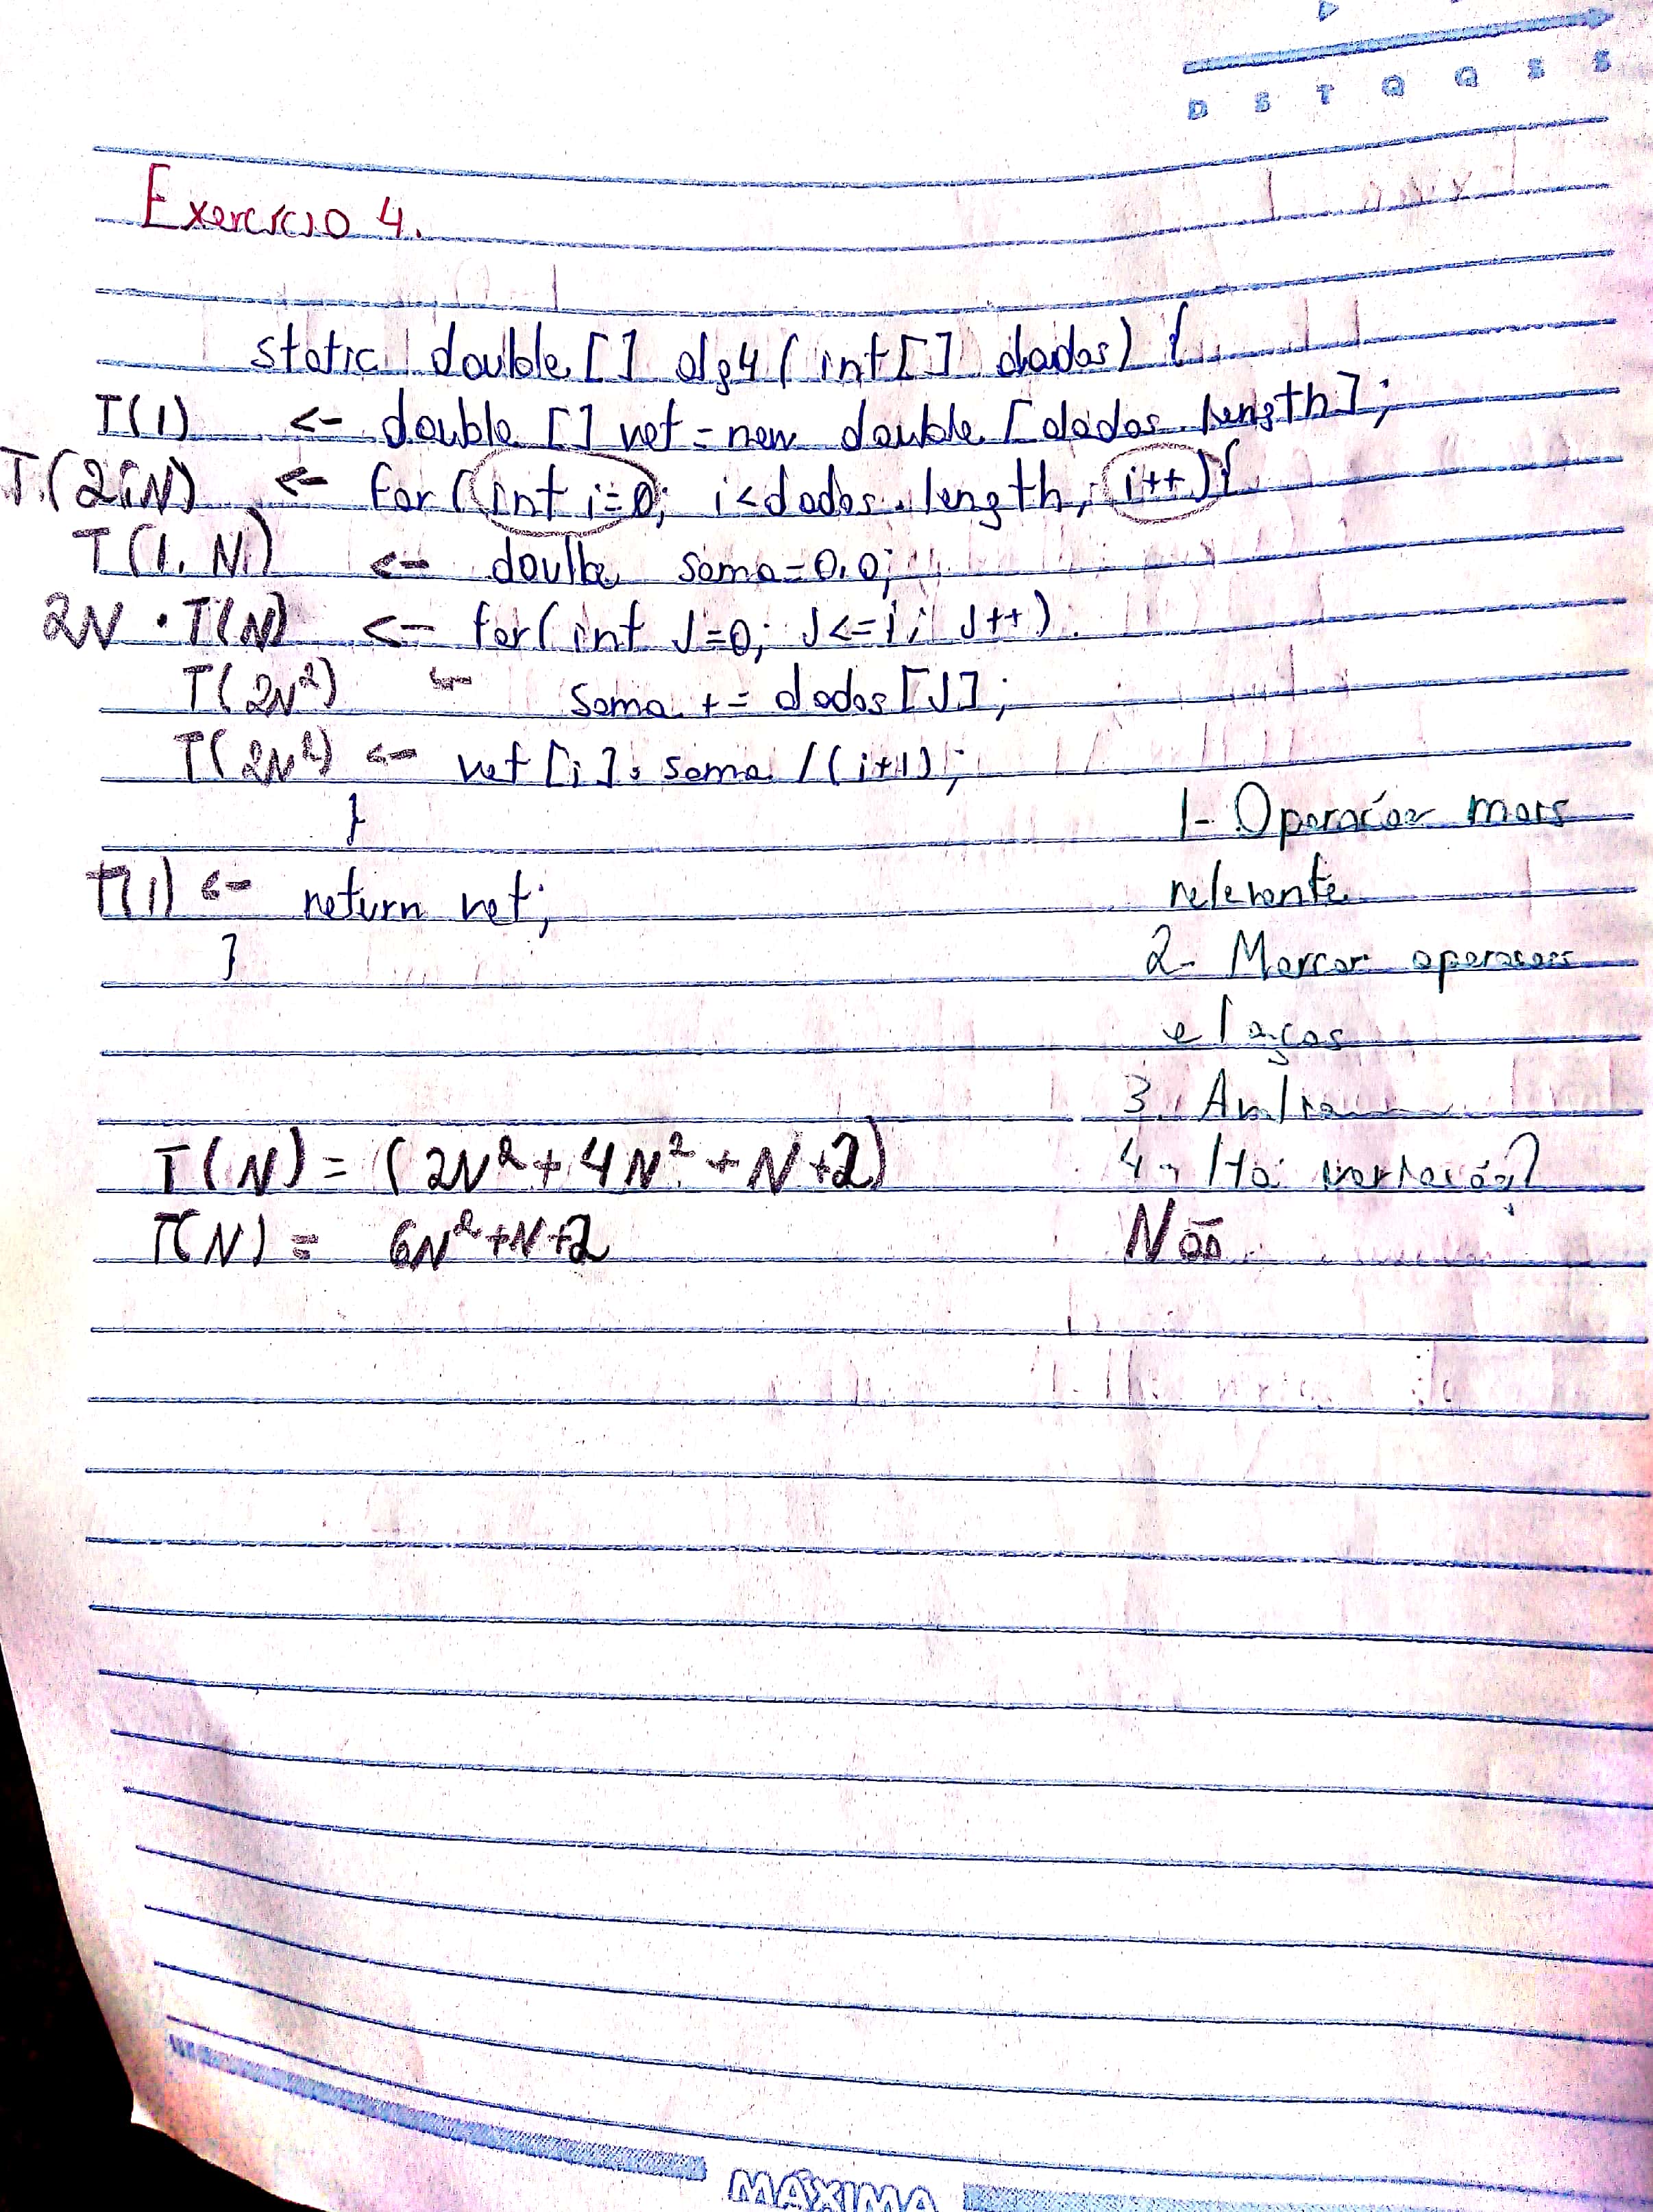 D S T Q Q S S
Exercício 4.
static double [] alg4 ( int [] dados) {
T(1) <- double [] vet = new double [dados.length];
T(2N) <- for (int i=0; i<dados.length; i++){
T(1.N) <- doulbe soma=0.0;
2N · T(N) <- for( int J=0; J<=i; J++)
T(2N²) <- soma += dados[J];
T(2N²) <- vet [i] = soma /(i+1);
}
T(1) <- return vet;
}
1- Operação mais
relevante
2- Marcar operacoes
e laços
3.
4- Há variação?
Não
T(N) = (2N² + 4N² + N+2)
T(N) = 6N²+N+2
MÁXIMA